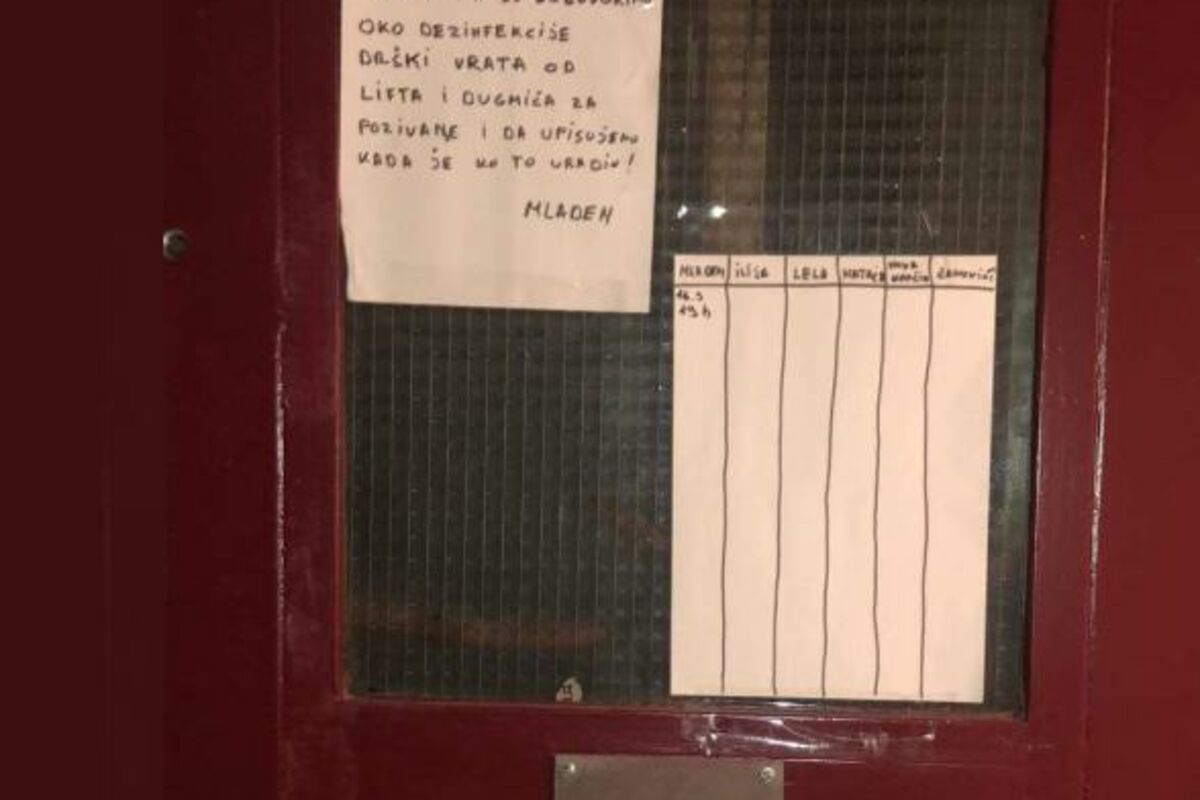 OKO DEZINFEKCIJE
DRŠKI VRATA OD
LIFTA I DUGMIĆA ZA
POZIVANJE I DA UPISUJEMO
KADA JE KO TO URADIO!
MLADEN
MLADEN ILIJA LELA NATAŠA
16.3
19 h